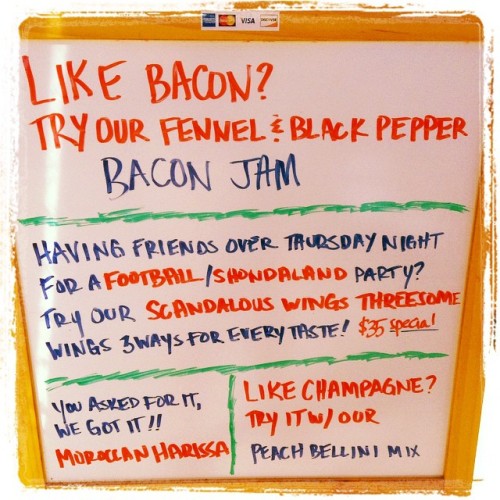 VISA
LIKE BACON?
TRY OUR FENNEL & BLACK PEPPER
BACON JAM
HAVING FRIENDS OVER THURSDAY NIGHT
FOR A FOOTBALL/SHONDALAND PARTY?
TRY OUR SCANDALOUS WINGS THREESOME
WINGS 3 WAYS FOR EVERY TASTE! $35 special
YOU ASKED FOR IT,
WE GOT IT!!
MOROCCAN HARISSA
LIKE CHAMPAGNE?
TRY IT W/ OUR
PEACH BELLINI MIX